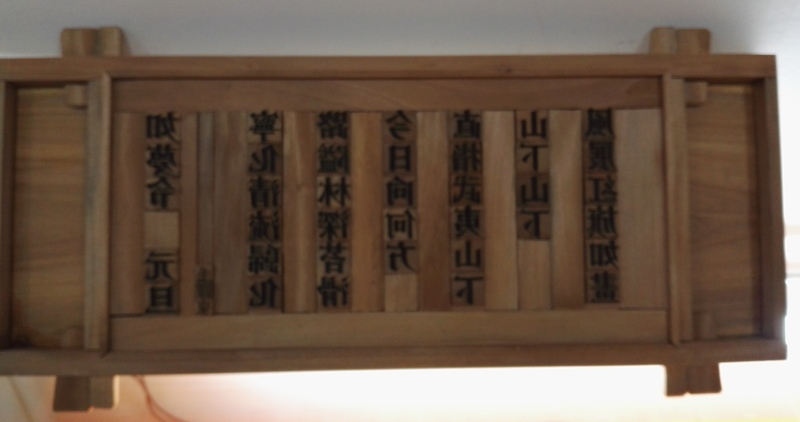 如夢令 元旦
寧化清流歸化
路隘林深苔滑
今日向何方
直指武夷山下
山下山下
風展紅旗如畫